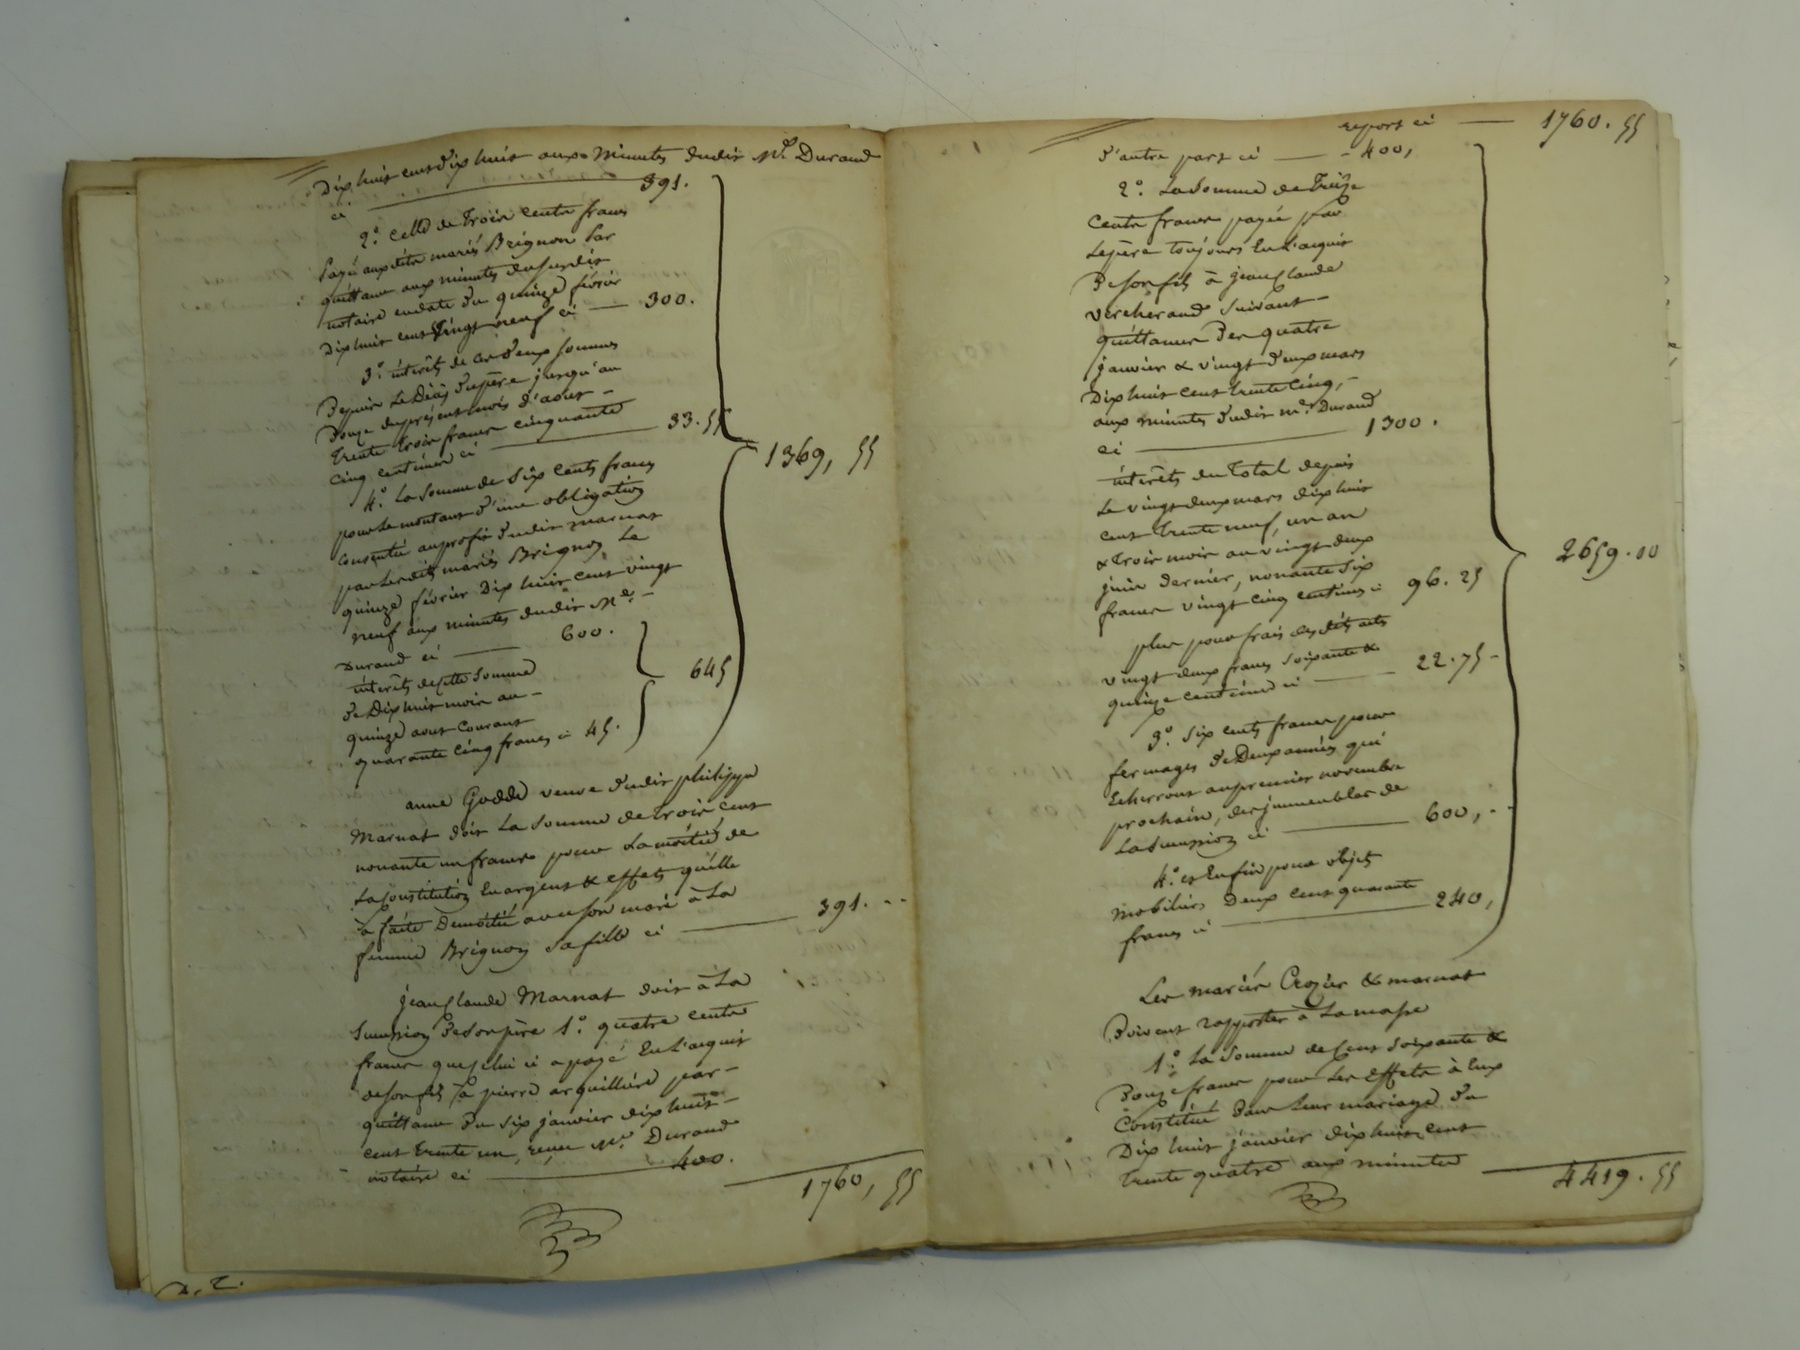 Dix huit cent dix huit aux minutes dudit Me Durand
ci 391.
2º. celle de Trois cents francs
payée auxdits mariés Brignon par
quittance aux minutes dususdit
notaire en date du quinze février
Dix huit cent vingt neuf ci 300.
3º. intérêts de ces deux sommes
Depuis Le Décès du père jusqu'au
Douze du présent mois d'aout
trente trois francs cinquante
cinq centimes ci 33.55
1369, 55
4º. La Somme de Six cents francs
pour Le montant d'une obligation
consentie au profit dudit marnat
par Lesdits mariés Brignon, Le
quinze février Dix huit cent vingt
neuf aux minutes dudit Me.
Durand ci 600.
645
intérêts de cette Somme
de Dix huit mois au
quinze aout Courant
quarante Cinq francs ci 45.
anne Godde veuve dudit philippe
Marnat doit La Somme de trois cent
nonante un francs pour La moitié de
La Constitution En argent & effets qu'elle
à faite Demoitié avec son mari à La
femme Brignon Sa fille ci 391.
jean Claude Marnat doit à La
Succession De Son père 1º. quatre cents
francs que celui ci a payé En L'acquit
de Son fils à pierre arquillière par
quittance du Six janvier dix huit
cent trente un, reçue Me. Durand
notaire ci 400.
1760, 55
D. C.
report ci 1760. 55
d'autre part ci 400,
2º. La Somme de Treize
Cents francs payée par
Le père toujours En L'acquit
De Son fils à jean Claude
vercherand Suivant
quittances Des quatre
janvier & vingt deux mars
Dix huit cent trente Cinq,
aux minutes dudit Me. Durand
ci 1300.
intérêts du Total depuis
Le vingt deux mars dix huit
cent trente neuf, un an
& trois mois au vingt deux
juin dernier, nonante Six
francs vingt cinq centimes ci 96. 25
2659. 00
plus pour frais desdits acts
vingt deux francs Soixante &
quinze centimes ci 22. 75
3º. Six cents francs pour
fermages de Deux années qui
Echerront au premier novembre
prochain, des immeubles de
La Succession ci 600,
4º. et Enfin pour objets
mobiliers Deux cent quarante
francs ci 240,
Les mariés Crozier & marnat
Doivent rapporter à La masse
1º. La Somme de Cent Soixante &
Douze francs pour Les Effets à Eux
Constitué dans Leur mariage du
Dix huit janvier dix huit cent
trente quatre aux minutes
4419. 55